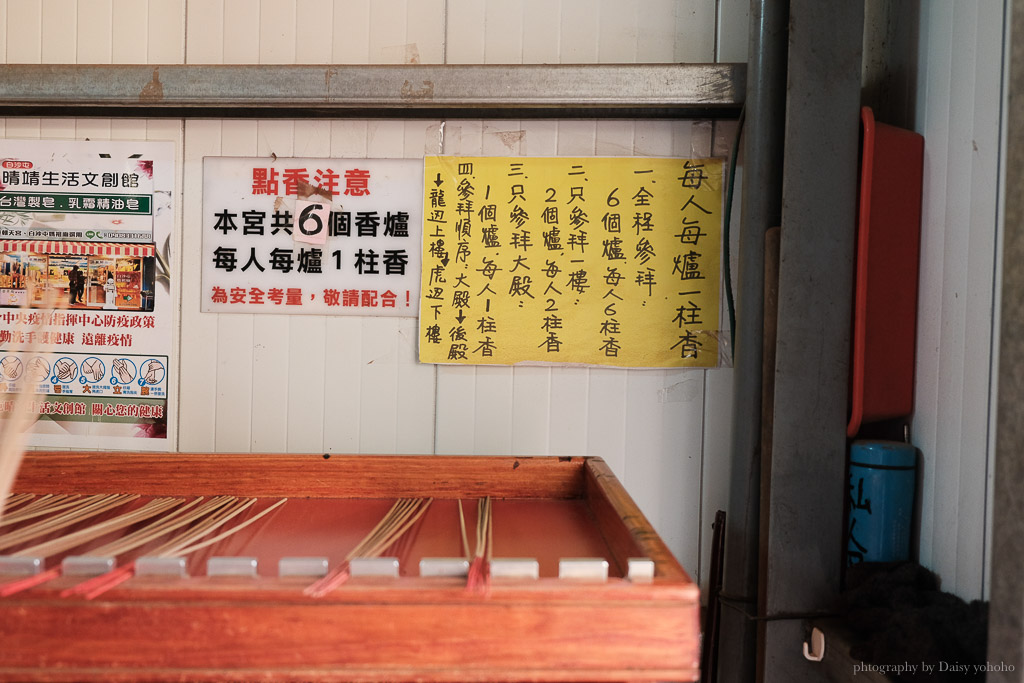 白沙屯
晴靖生活文創館
台灣製皂.乳霜精油皂
中央疫情指揮中心防疫政策
勤洗手護健康 遠離疫情
生活文創館 關心您的健康
點香注意
本宮共6個香爐
每人每爐1柱香
為安全考量，敬請配合！
每人每爐一柱香
一.全程參拜：
6個爐.每人6柱香
二.只參拜一樓：
2個爐.每人2柱香
三.只參拜大殿：
1個爐.每人1柱香
四.參拜順序：大殿→後殿
→龍边上樓→虎边下樓
私人
photography by Daisy yohoho